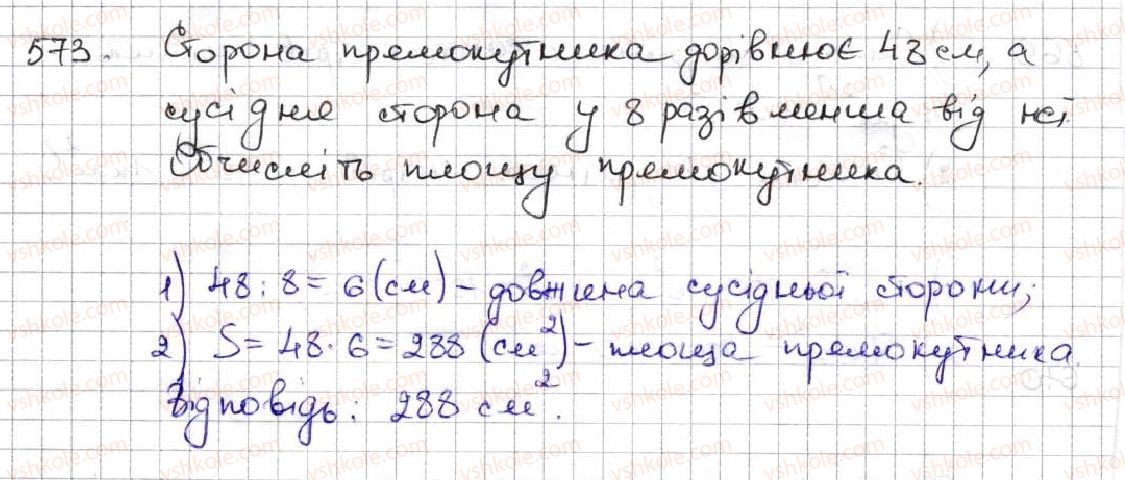 573. Сторона прямокутника дорівнює 48 см, а
сусідня сторона у 8 разів менша від неї.
Обчисліть площу прямокутника.
1) 48 : 8 = 6 (см) – довжина сусідньої сторони;
2) S = 48 · 6 = 288 (см²) – площа прямокутника.
Відповідь: 288 см².